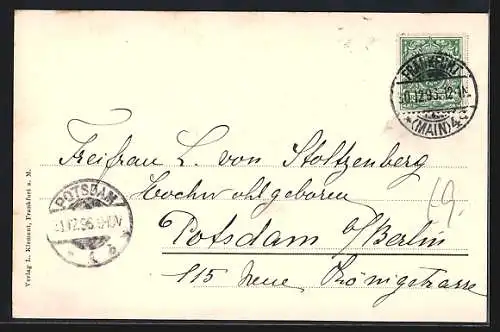 FRANKFURT
12.96.12-1N
*(MAIN)4c
Freifrau L. von Stoltzenberg
Hochwohlgeboren
Potsdam b/Berlin
115 Neue Königstrasse
POTSDAM
12.96
Verlag L. Klement, Frankfurt a. M.